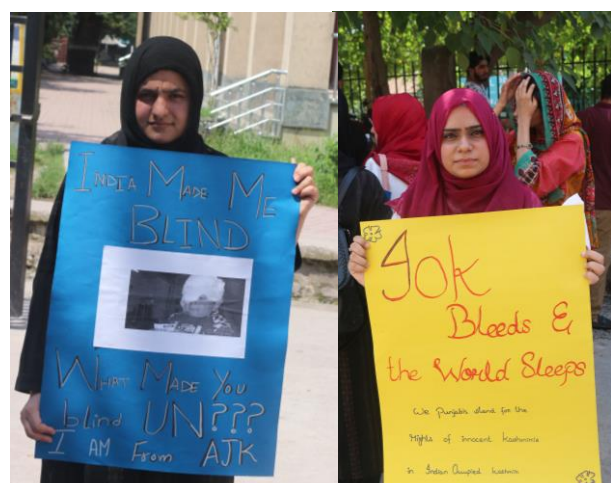 INDIA MADE ME
BLIND
WHAT MADE YOU
blind UN???
I AM FROM AJK
IOK
Bleeds &
the World Sleeps
We Punjabis stand for the
Rights of innocent Kashmiris
in Indian Occupied Kashmir